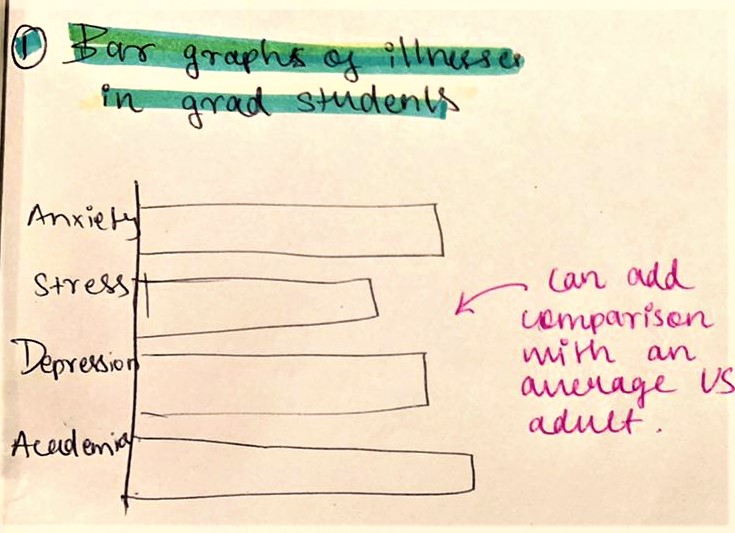 ① Bar graphs of illnesses
in grad students
Anxiety
Stress
Depression
Academia
can add
comparison
with an
average US
adult.